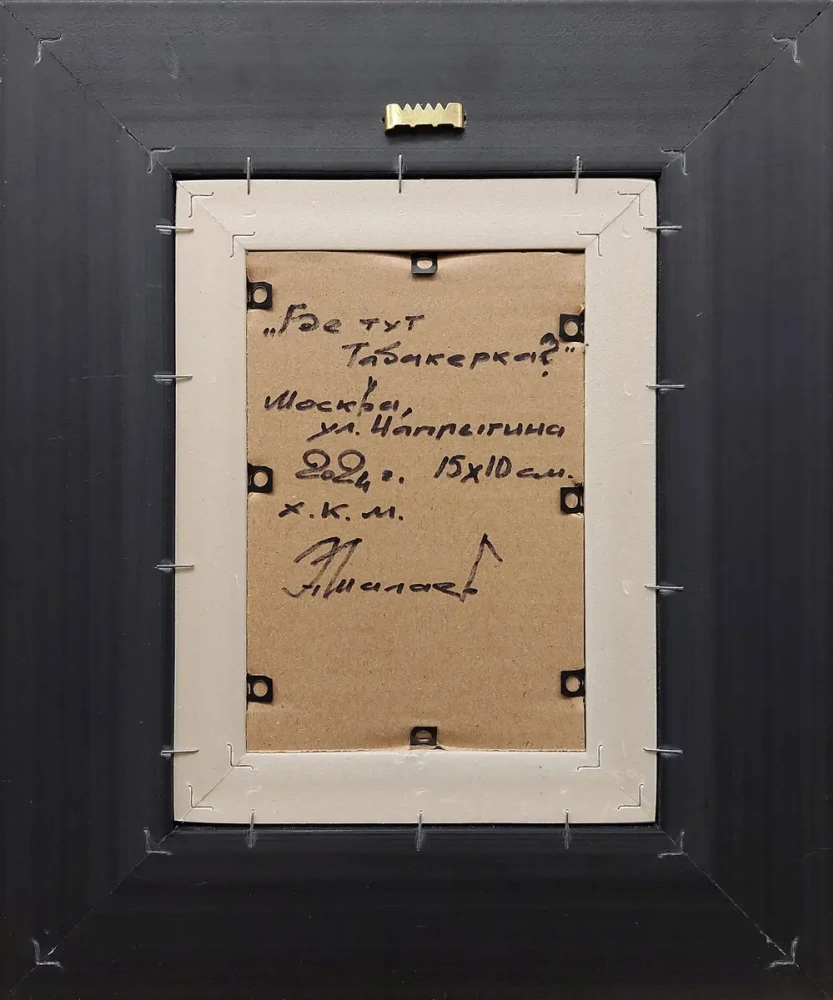 „Где тут
Табакерка?"
Москва,
ул. Чаплыгина
2024 г. 15х10 см.
х.к.м.